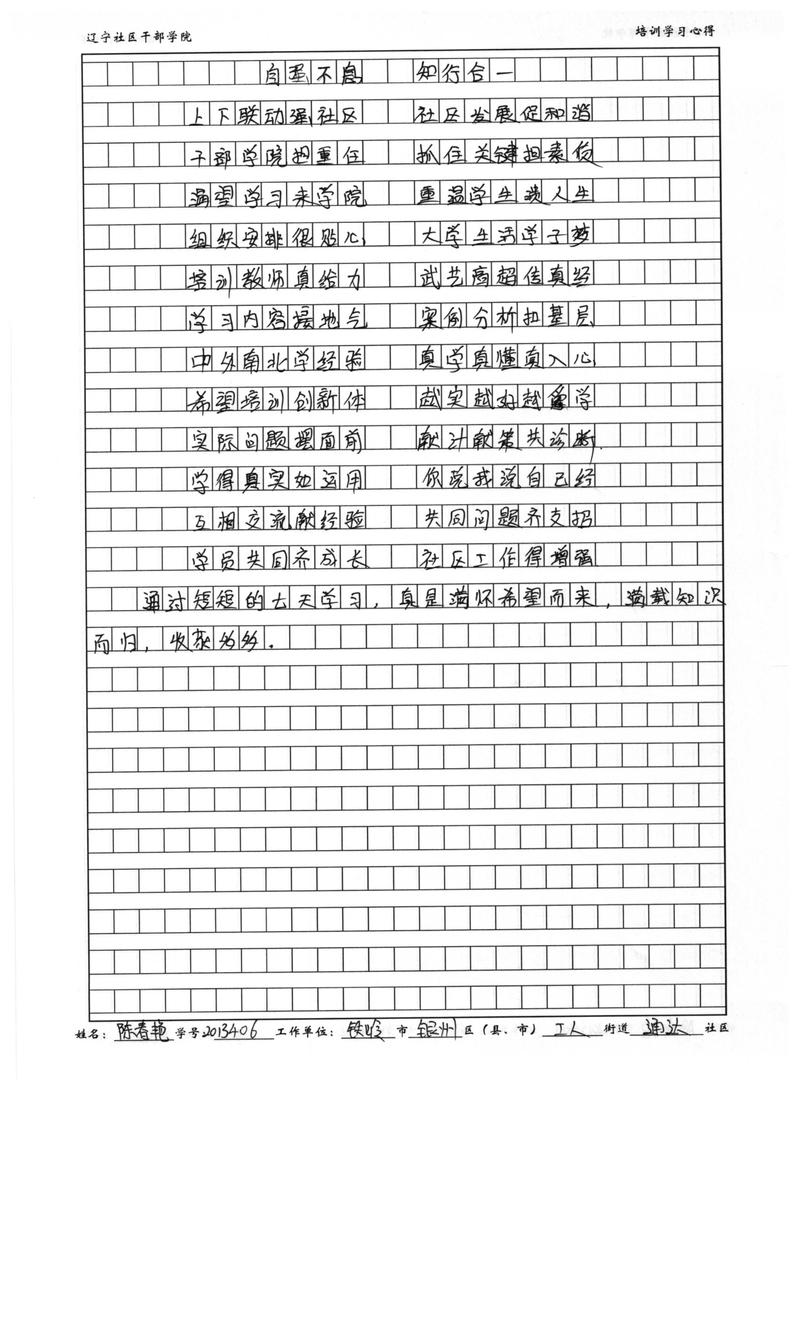 辽宁社区干部学院 培训学习心得
自强不息 知行合一
上下联动强社区 社区发展促和谐
干部学院担重任 抓住关键担素质
渴望学习来学院 重温学生谈人生
组织安排很贴心 大学生活学子梦
培训教师真给力 武艺高超传真经
学习内容接地气 案例分析扣基层
中外南北学经验 真学真懂真入心
希望培训创新体 越实越好越学
实际问题摆面前 献计献策共诊断
学得真实如运用 你说我说自己经
互相交流献经验 共同问题齐支招
学员共同齐成长 社区工作得增强
通过短短的七天学习，真是满怀希望而来，满载知识
而归，收获多多.
姓名：陈春艳 学号2013406 工作单位：铁岭市银州区（县、市）工人街道通达社区